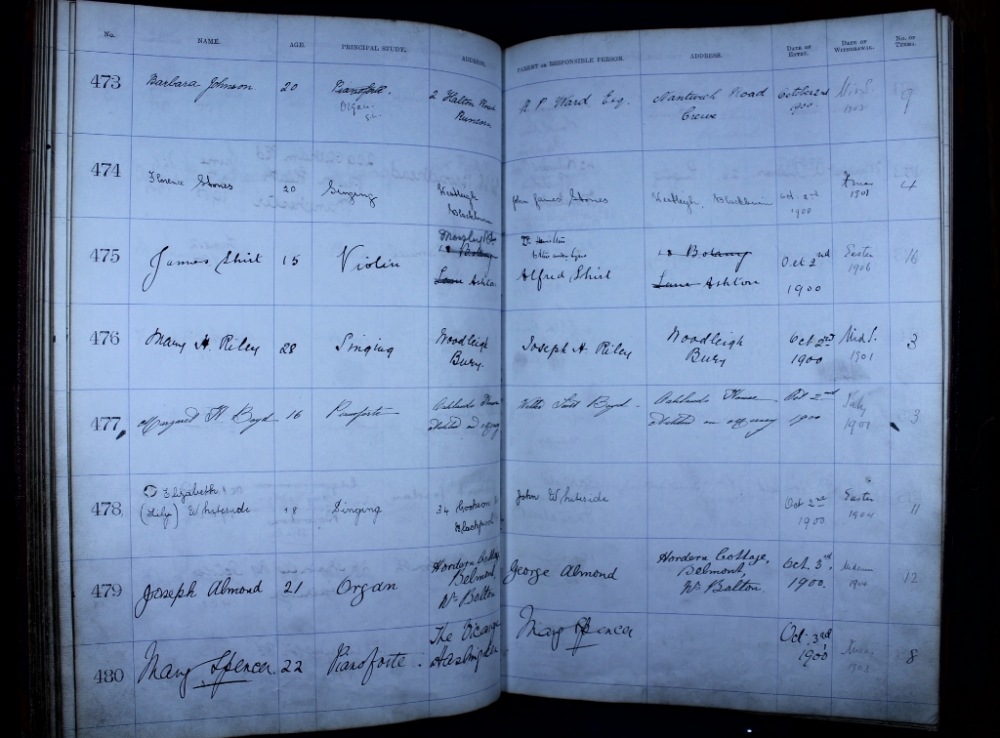 No.
NAME.
AGE.
PRINCIPAL STUDY.
ADDRESS.
PARENT OR RESPONSIBLE PERSON.
ADDRESS.
DATE OF
ENTRY.
DATE OF
WITHDRAWAL.
No. OF
TERMS.
473
Barbara Johnson.
20
Pianoforte.
Organ
2 Halton Road
Runcorn
A. P. Ward Esq.
Nantwich Road
Crewe
October 2nd
1900.
9
474
Florence Stones
20
Singing
Blackburn
John James Stones
Blackburn
Oct. 2nd
1900
Xmas
1901
4
475
James Shirt
15
Violin
18 Botany
Lane Ashton
Alfred Shirt
18 Botany
Lane Ashton
Oct 2nd
1900
Easter
1906
16
476
Mary H. Riley
28
Singing
Woodleigh
Bury.
Joseph H. Riley
Woodleigh
Bury.
Oct 2nd
1900
Mids.
1901
3
477
Margaret H Boyd
16
Pianoforte
Ashlands House
Walter Scott Boyd.
Ashlands House
Oct 2nd
1900
July
1901
3
478
Elizabeth
(Lily) Whiteside
18
Singing
34 Cookson St
Blackpool
John Whiteside
Oct 2nd
1900
Easter
1904
11
479
Joseph Almond
21
Organ
Hordern Cottage,
Belmont,
Nr. Bolton
George Almond
Hordern Cottage,
Belmont,
Nr. Bolton.
Oct. 3rd.
1900.
12
480
Mary Spencer.
22
Pianoforte.
The Vicarage
Haslingden
Mary Spencer
Oct. 3rd
1900
8